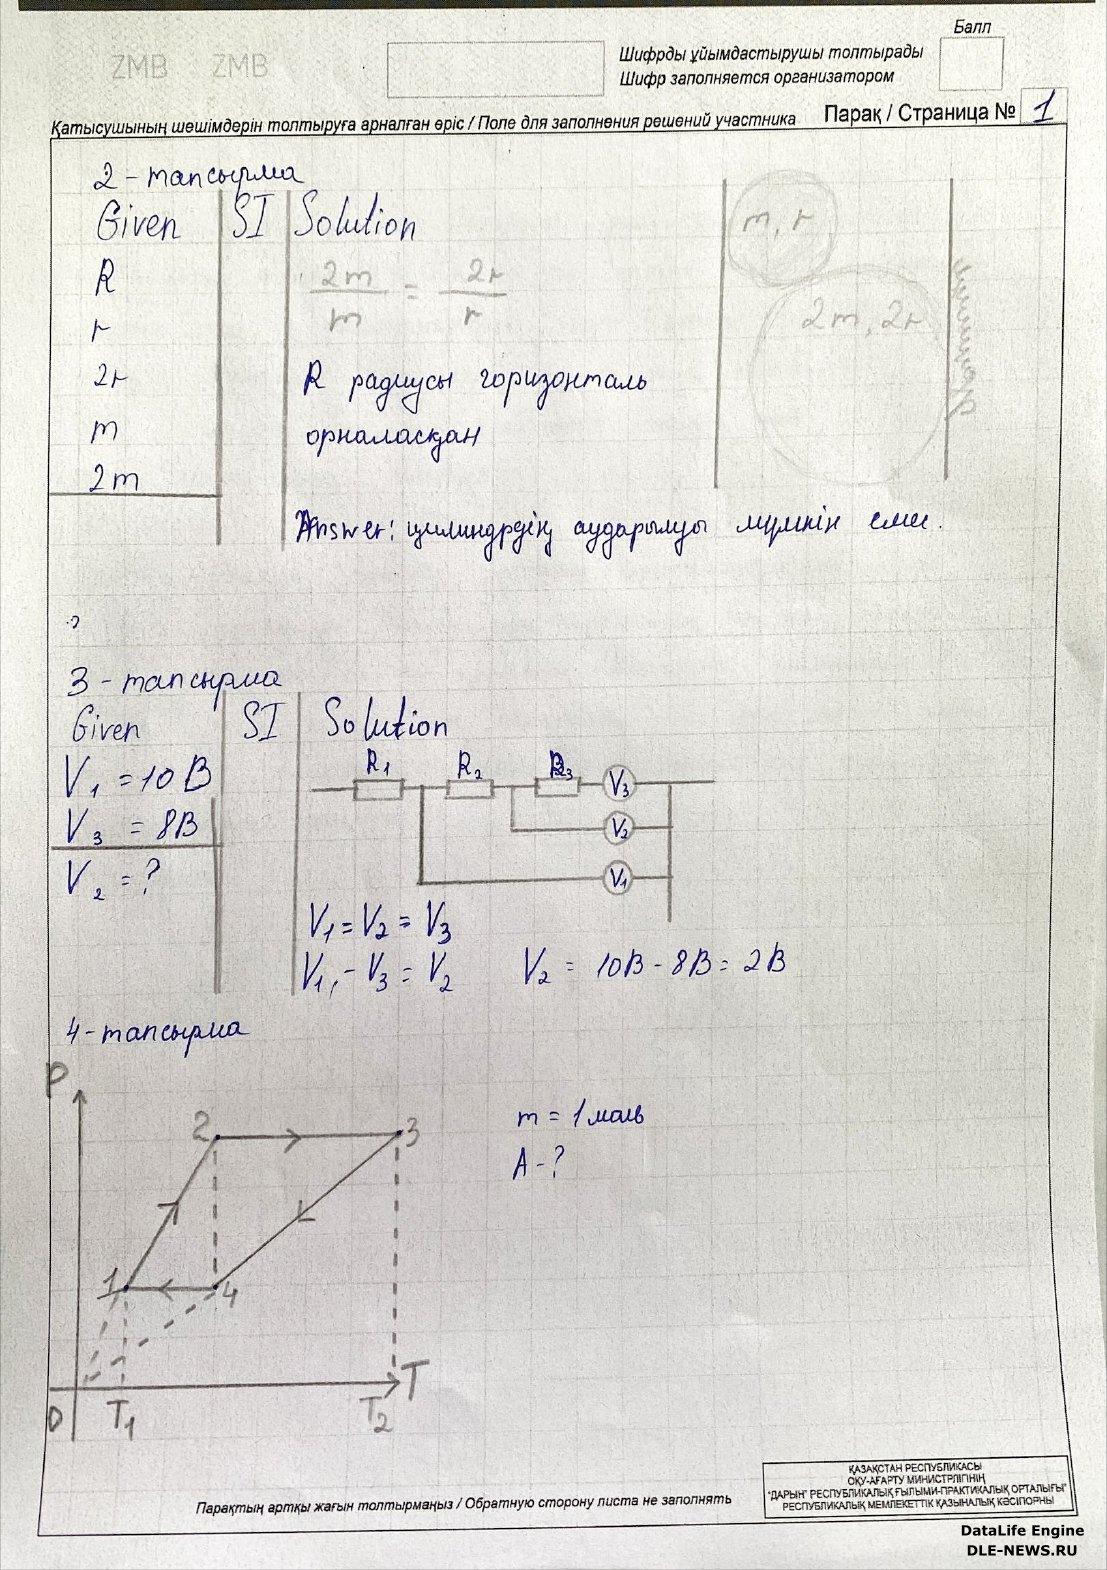 Балл
ZMB ZMB
Шифрды ұйымдастырушы толтырады
Шифр заполняется организатором
Қатысушының шешімдерін толтыруға арналған өріс / Поле для заполнения решений участника
Парақ / Страница № 1
2 - тапсырма
Given SI Solution
R
r
2r
m
2m
2m/m = 2r/r
m, r
2m, 2r
R радиусы горизонталь
орналасқан
Answer: цилиндрдің аударылуы мүмкін емес.
3 - тапсырма
Given SI Solution
V1 = 10 В
V3 = 8В
V2 = ?
R1 R2 R3 V3
V2
V1
V1 = V2 = V3
V1 - V3 = V2 V2 = 10В - 8В = 2В
4 - тапсырма
P
2 3
1 4
0 T1 T2 T
m = 1 моль
A - ?
ҚАЗАҚСТАН РЕСПУБЛИКАСЫ
ОҚУ-АҒАРТУ МИНИСТРЛІГІНІҢ
"ДАРЫН" РЕСПУБЛИКАЛЫҚ ҒЫЛЫМИ-ПРАКТИКАЛЫҚ ОРТАЛЫҒЫ"
РЕСПУБЛИКАЛЫҚ МЕМЛЕКЕТТІК ҚАЗЫНАЛЫҚ КӘСІПОРНЫ
Парақтың артқы жағын толтырмаңыз / Обратную сторону листа не заполнять
DataLife Engine
DLE-NEWS.RU